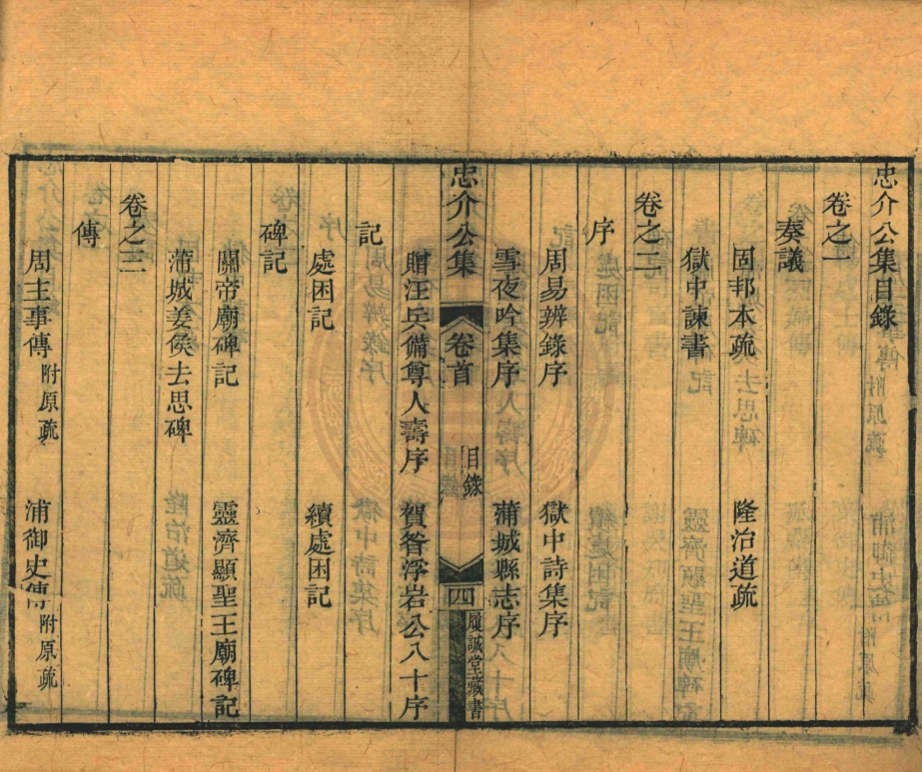 忠介公集目錄
卷之一
奏議
固邦本疏 隆治道疏
獄中諫書
卷之二
序
周易辨錄序 獄中詩集序
雪夜吟集序 蒲城縣志序
忠介公集 卷首 目錄 四 履誠堂藏書
贈汪兵備尊人壽序 賀昝浮岩公八十序
記
處困記 續處困記
碑記
關帝廟碑記 靈濟顯聖王廟碑記
蒲城姜侯去思碑
卷之三
傳
周主事傳 附原疏 浦御史傳 附原疏